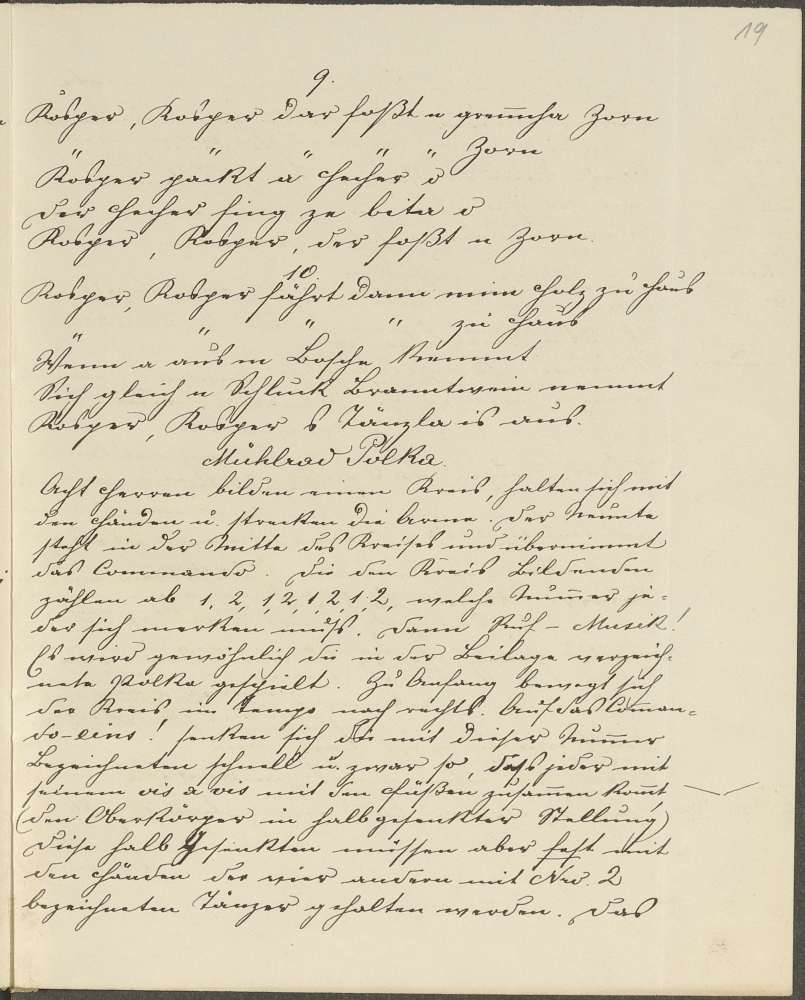 19
9.
Kosper, Kosper dar foßt u gremmcha Zorn
" " " " " Zorn
Kosper packt a Hecher o
Der Hecher fing ze bita o
Kosper, Kosper, der foßt u Zorn.
10.
Kosper, Kosper fährt dann mim Holz zu Haus
" " " " zu Haus
Wenn a aus m Bosche kemmt
Sich gleich u Schluck Branntwein nemmt
Kosper, Kosper s Tänzla is aus.
Mühlrad Polka.
Acht Herren bilden einen Kreis, halten sich mit
den Händen u. strecken die Arme. Der Neunte
steht in der Mitte des Kreises und übernimmt
das Commando. Die den Kreis Bildenden
zählen ab 1, 2, 1, 2, 1, 2, 1, 2, welche Num̅er je-
der sich merken muß. Dann Ruf - Musik!
Es wird gewöhnlich die in der Beilage verzeich-
nete Polka gespielt. Zu Anfang bewegt sich
der Kreis im Tempo nach rechts. Auf das Com̅an-
do-eins! senken sich die mit dieser Num̅er
Bezeichneten schnell u. zwar so, daß jeder mit
seinem vis a vis mit den Füßen zusam̅en kom̅t
(den Oberkörper in halbgesenkter Stellung)
Diese halb Gesenkten müssen aber fest mit
den Händen der vier andern mit Nro. 2
bezeichneten Tänzer gehalten werden. Das